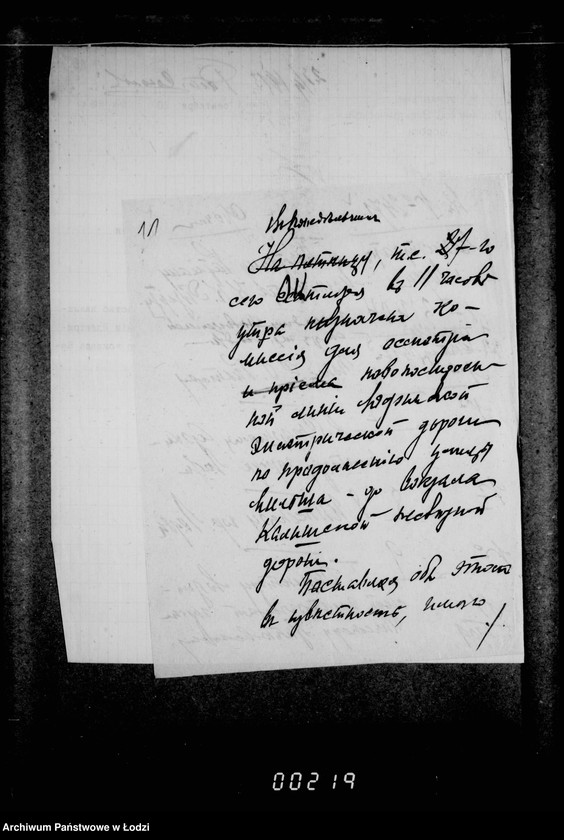 11
Въ понедѣльникъ
На пятницу, т.е. 27-го
сего Октября въ 11 часовъ
утра назначена ко-
миссія для осмотра
и пріема новопостроен-
ной линіи Лодзинской
Электрической дороги
по продолженію улицы
Мильша - до вокзала
Калишской железной
дороги.
Поставляя объ этомъ
въ извѣстность, имѣю
00219
Archiwum Państwowe w Łodzi